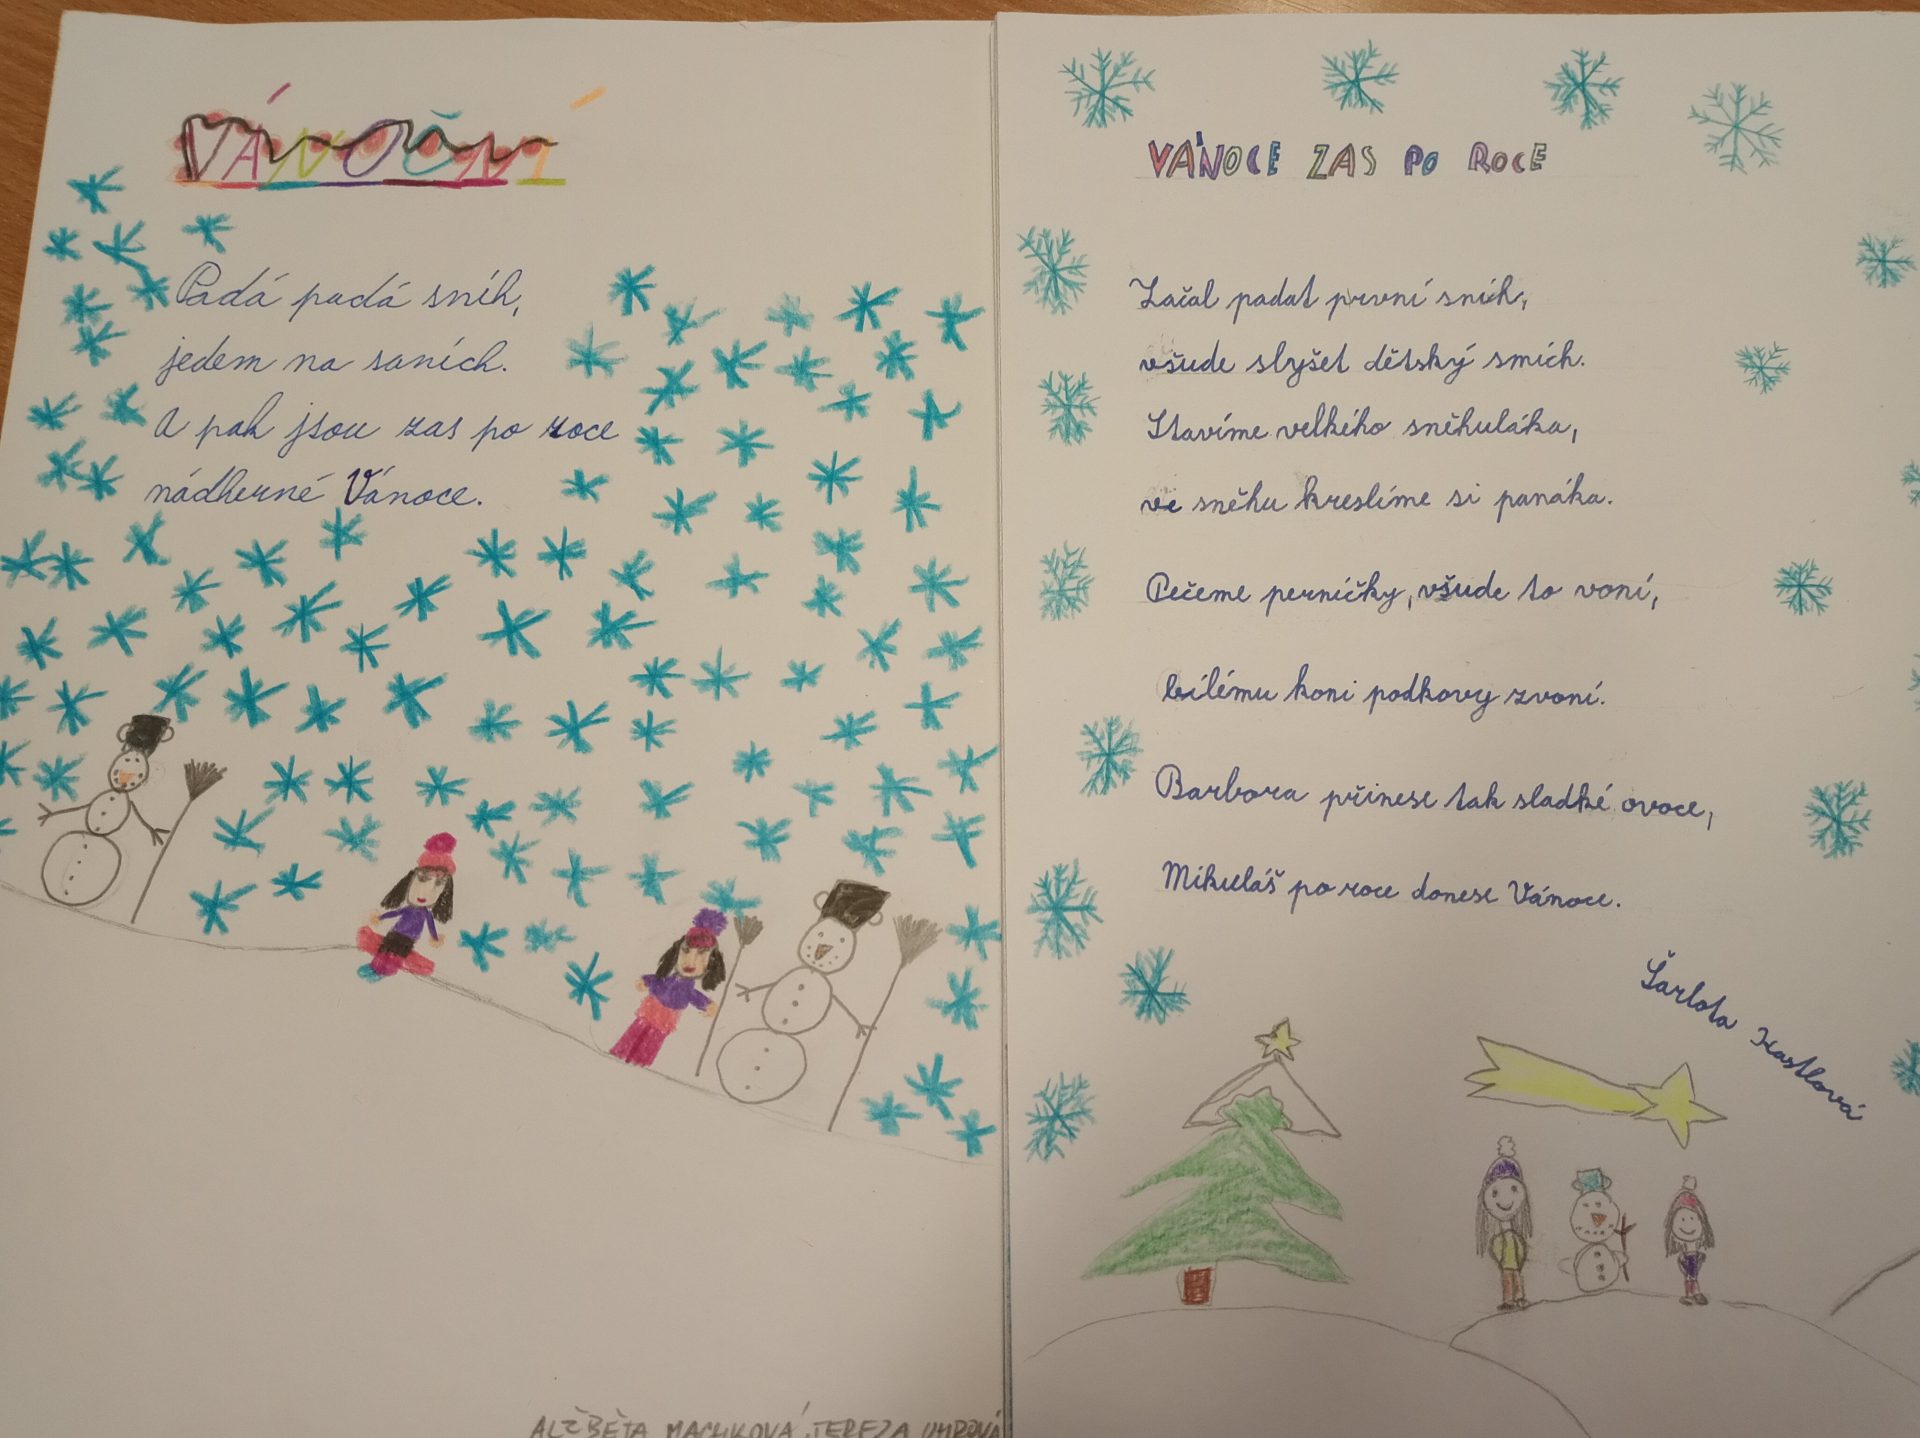 VÁNOČNÍ
Padá padá sníh,
jedem na saních.
A pak jsou zas po roce
nádherné Vánoce.
ALŽBĚTA MACHKOVÁ, TEREZA
VÁNOCE ZAS PO ROCE
Začal padat první sních,
všude slyšet dětský smích.
Stavíme velkého sněhuláka,
ve sněhu kreslíme si panáka.
Pečeme perníčky, všude to voní,
bílému koni podkovy zvoní.
Barbora přinese tak sladké ovoce,
Mikuláš po roce donese Vánoce.
Šarlota